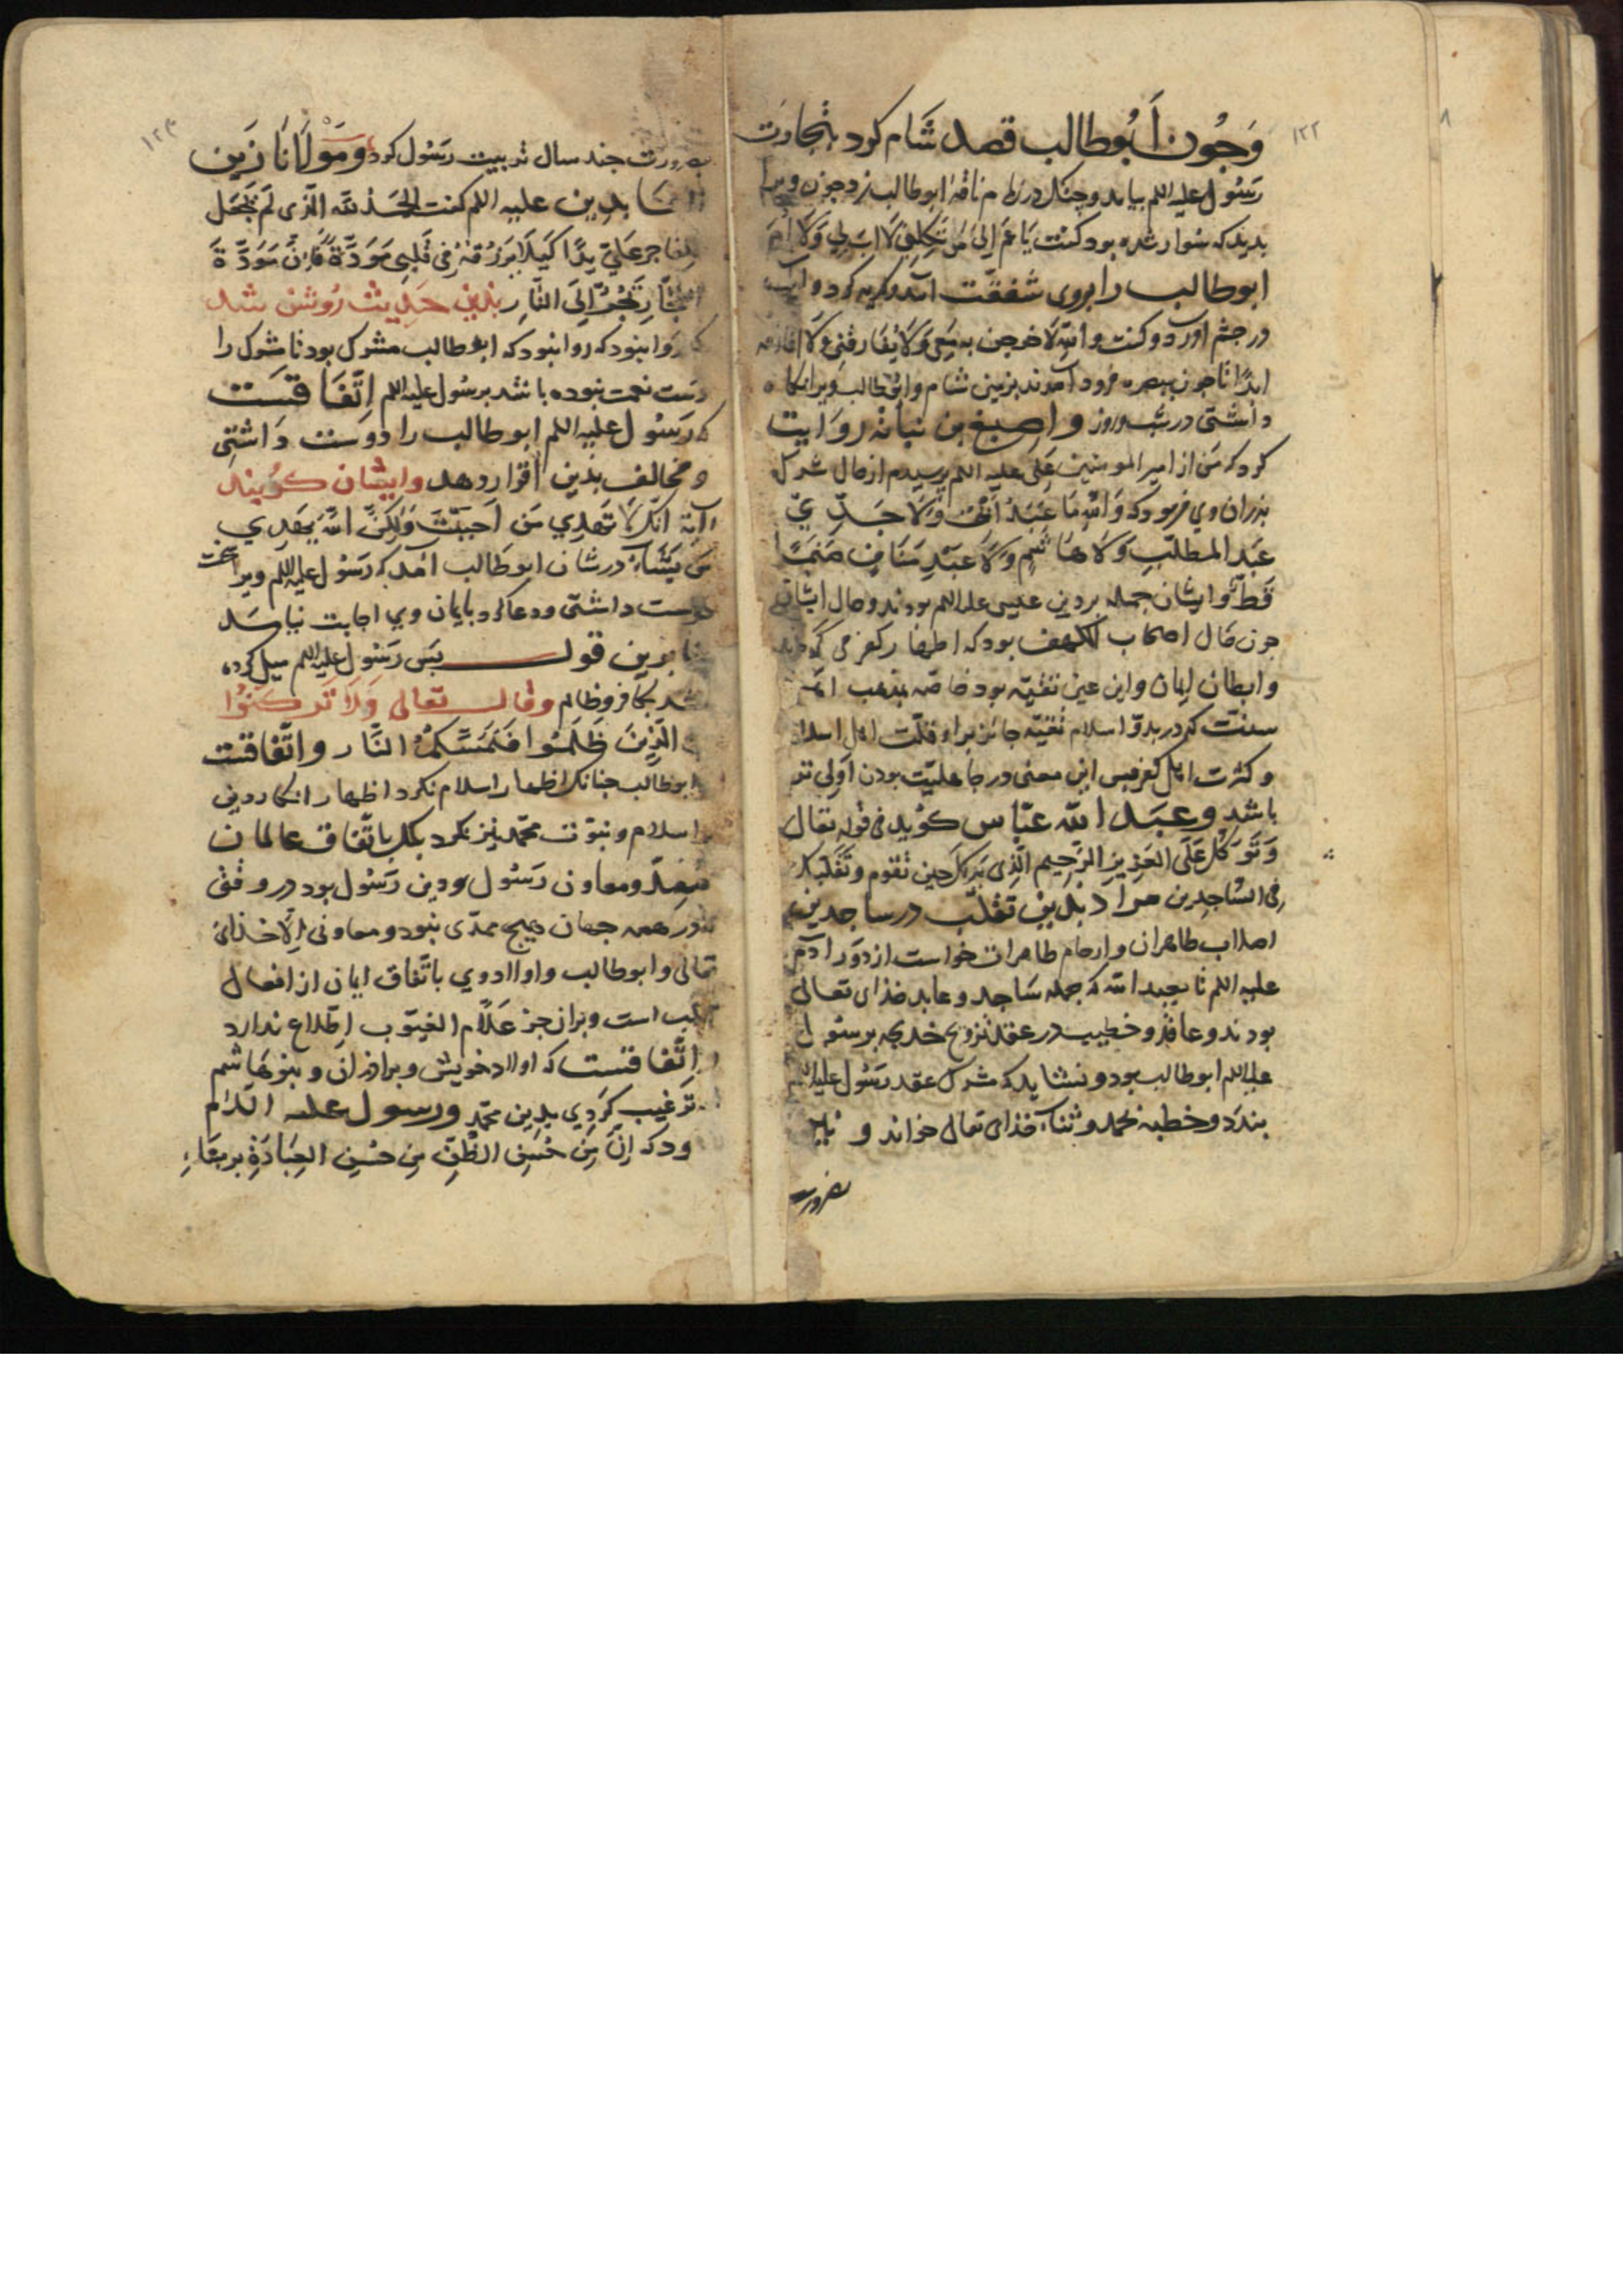 ۱۲۲
وَجُون اَبُوطالب قصد شَام کرد بتجارت
رسُول علیه اللم بیامد و چنک در زمام ناقهٔ ابوطالب زد جون ویرا
بدید که سوار شده بود کفت یَا عَمّ اِلیٰ مَن تَکِلنی لَا اَبَ لِی وَلَا اُمّ
ابوطالب را بروی شفقّت آمد و کریه کرد و آب
در جشم اورد و کفت واللهِ لَاخرجن به مَعِی وَلَا یُفَارقنی وَلَا افارقه
ابدًا تا جون ببصره فرود آمدند بزمین شام وابوطالب ویرا نکاه
داشتی در شب وروز واصبغ بن نباته روایت
کرد که من از امیر المومنین علی علیه اللم پرسیدم از حال شرک
بذران وی فرمود که وَاللهِ مَا عَبَدَ اَبی وَلَا جَدِّی
عَبد المطلّبِ وَلَا هَاشِم وَلَا عَبْدِ مَنَاف صَنَمًا
قَطّ وایشان جمله بر دین عیسی علیه اللم بودند وحال ایشان
جون حال اصحاب الکهف بود که اظهار کفر می کردند
وابطان ایمان واین عین تقیّه بود خاصّه بمذهب
سنّت که در بدوّ اسلام تقیّه جائز براو قلّت اهل اسلام
و کثرت اهل کفر بس این معنی در جاهلیّت بودن اَولی تر
باشد وعبد الله عبّاس کوید فی قوله تعالی
وَتَوَکَّل عَلَی العَزِیزِ الرَّحِیم الَّذِی یَرٰیکَ حِین تقوم وتَقَلُّبَک
فِی السَّاجِدِین مراد بدین تقلّب در ساجدین
اصلاب طاهران وارحام طاهرات خواست از دَور آدم
علیه اللم تا بعبد الله که جمله سَاجد و عابد خذای تعالی
بودند وعاقد وخطیب در عقد تزویج خدیجه برسُول
علیه اللم ابوطالب بود ونشاید که مشرک عقد رسُول علیه اللم
بندَد وخطبه بحمد وثناء خذای تعالی خواند و
بضرورت
۱۲۳
بضرورت جند سال تربیت رسُول کرد ومَوْلَانَا زَین
العابدین علیه اللم کفت الحَمدُ لله الَّذی لَم یَجعَل
لِفَاجرٍ عَلَیَّ یدًا کَیلَا یَرزُقهُ فی قَلبِی مَوَدَّةً فَاِنَّ مَوَدَّةَ
الفُجّارِ تَجُرُّ اِلَی النَّارِ بذین حدیث رُوشن شد
که روا نبود که روا نبود که ابوطالب مشرک بود تا مشرک را
دست نعمت نبوده باشد برسُول علیه اللم اِتّفَاقَسْت
که رَسُول علیه اللم ابوطالب را دوست داشتی
ومخالف بذین اقرار دهد وایشان کویند
آیَة انّک لَا تَهدِی مَن اَحبَبْتَ وَلکِنَّ اللهَ یَهدِی
مَن یَشَاءُ در شان ابوطالب آمد که رسُول علیه اللم ویرا عمت
دوست داشتی ودعا کرد بایمان وی اجابت نیامد
بنا برین قول بس رسُول علیه اللم میل کرده
شد بکافر وظالم وقال تعالی وَلَا تَرکَنُوا
اِلی الَّذِینَ ظَلَمُوا فَتَمَسَّکُمُ النَّار واتّفاقست
ابوطالب جنانک اظهار اسلام نکرد اظهار انکار دین
اسلام ونبوّت محمّد نیز نکرد بلکه باتّفاق عالمان
مُمِدّ ومعاون رَسُول ودین رَسُول بود در وقتی
در همه جهان هیج ممدّی نبود ومعاونی اِلّا خذای
تعالی وابوطالب واولاد وی باتّفاق ایمان از افعال
قلب است وبران جز عَلّام الغیُوب اِطّلاع ندارد
واتّفاقست که اولاد خویش وبراذران وبنو هَاشم
ترغیب کَردی بدین محمّد ورسول علیه السّلام
فرمود که اِنَّ مِن حُسنِ الظَّنّ مِن حُسنِ العِبَادَةِ بر معَا